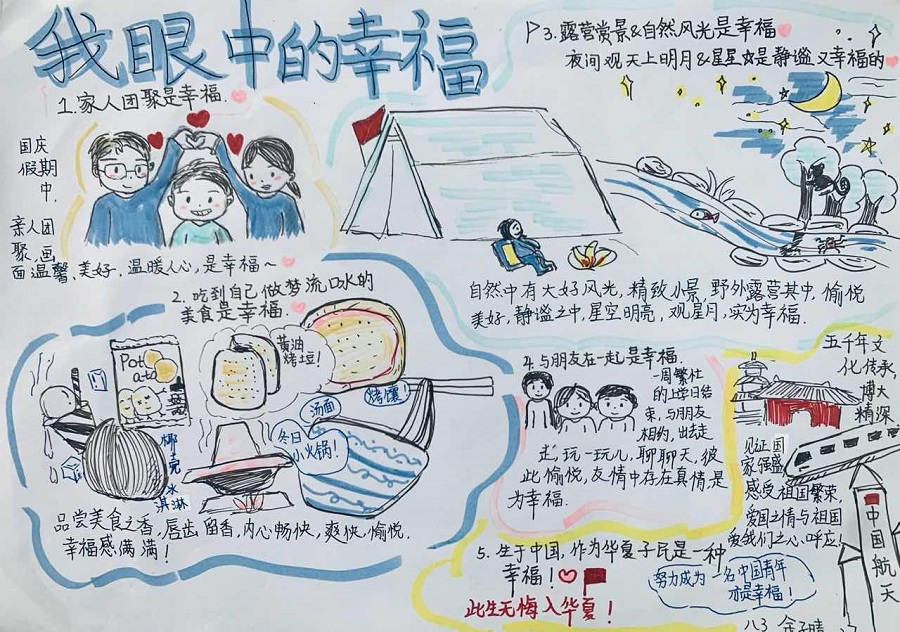 我眼中的幸福
1.家人团聚是幸福.
国庆
假期
中.
亲人团
聚,画
面温馨,美好,温暖人心,是幸福~
2.吃到自己做梦流口水的
美食是幸福.
黄油
烤土豆!
Pot
ato
烤馕!
汤面
冬日
小火锅!
椰
壳
冰
淇淋
品尝美食之香,唇齿留香,内心畅快,爽快,愉悦.
幸福感满满!
3.露营赏景&自然风光是幸福
夜间观天上明月&星星是静谧又幸福的
自然中有大好风光,精致小景,野外露营其中,愉悦
美好,静谧之中,星空明亮,观星月,实为幸福.
4.与朋友在一起是幸福.
一周繁忙
的上学日结
束,与朋友
相约,出去走
走,玩一玩儿,聊聊天,彼
此愉悦,友情中存在真情,是
为幸福.
五千年文
化传承,
博大
精深
见证国
家强盛
感受祖国繁荣,
爱国之情与祖国
爱我们之心,呼应!
5.生于中国,作为华夏子民是一种
幸福!
此生无悔入华夏!
努力成为一名中国青年
亦是幸福!
中国航天
八3